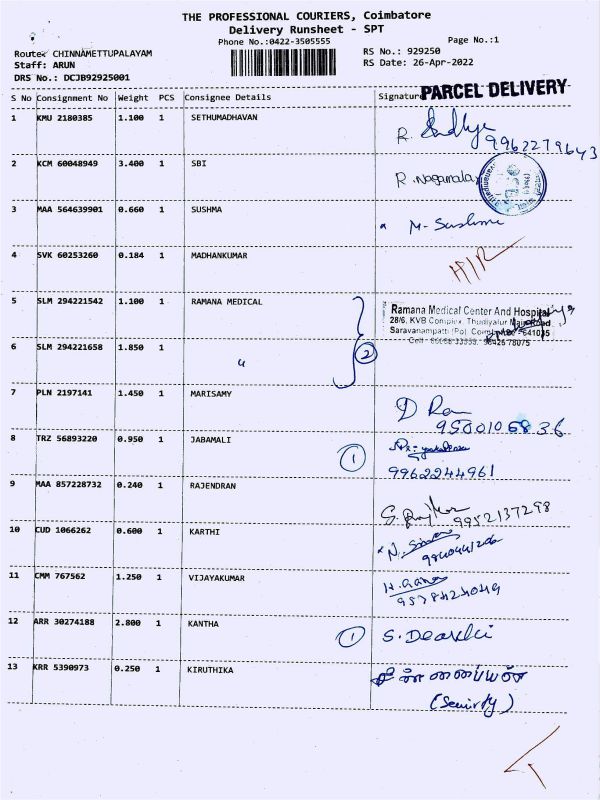 THE PROFESSIONAL COURIERS, Coimbatore
Delivery Runsheet - SPT
Phone No.:0422-3505555
Page No.:1
Route: CHINNAMETTUPALAYAM
RS No.: 929250
Staff: ARUN
RS Date: 26-Apr-2022
DRS No.: DCJB92925001
PARCEL DELIVERY
S No Consignment No Weight PCS Consignee Details Signature
1 KMU 2180385 1.100 1 SETHUMADHAVAN
R.
9962279643
2 KCM 60048949 3.400 1 SBI
R. Nagamala
3 MAA 564639901 0.660 1 SUSHMA
M- Sushma
4 SVK 60253260 0.184 1 MADHANKUMAR
5 SLM 294221542 1.100 1 RAMANA MEDICAL
Ramana Medical Center And Hospital
28/6, KVB Complex, Thudiyalur Main Road
Saravanampatti (Po) Coimbatore - 641035
6 SLM 294221658 1.850 1 "
2
7 PLN 2197141 1.450 1 MARISAMY
D Ram
9500106836
8 TRZ 56893220 0.950 1 JABAMALI
1
9962244961
9 MAA 857228732 0.240 1 RAJENDRAN
9952137298
10 CUD 1066262 0.600 1 KARTHI
11 CMM 767562 1.250 1 VIJAYAKUMAR
9578424049
12 ARR 30274188 2.800 1 KANTHA
1
13 KRR 5390973 0.250 1 KIRUTHIKA